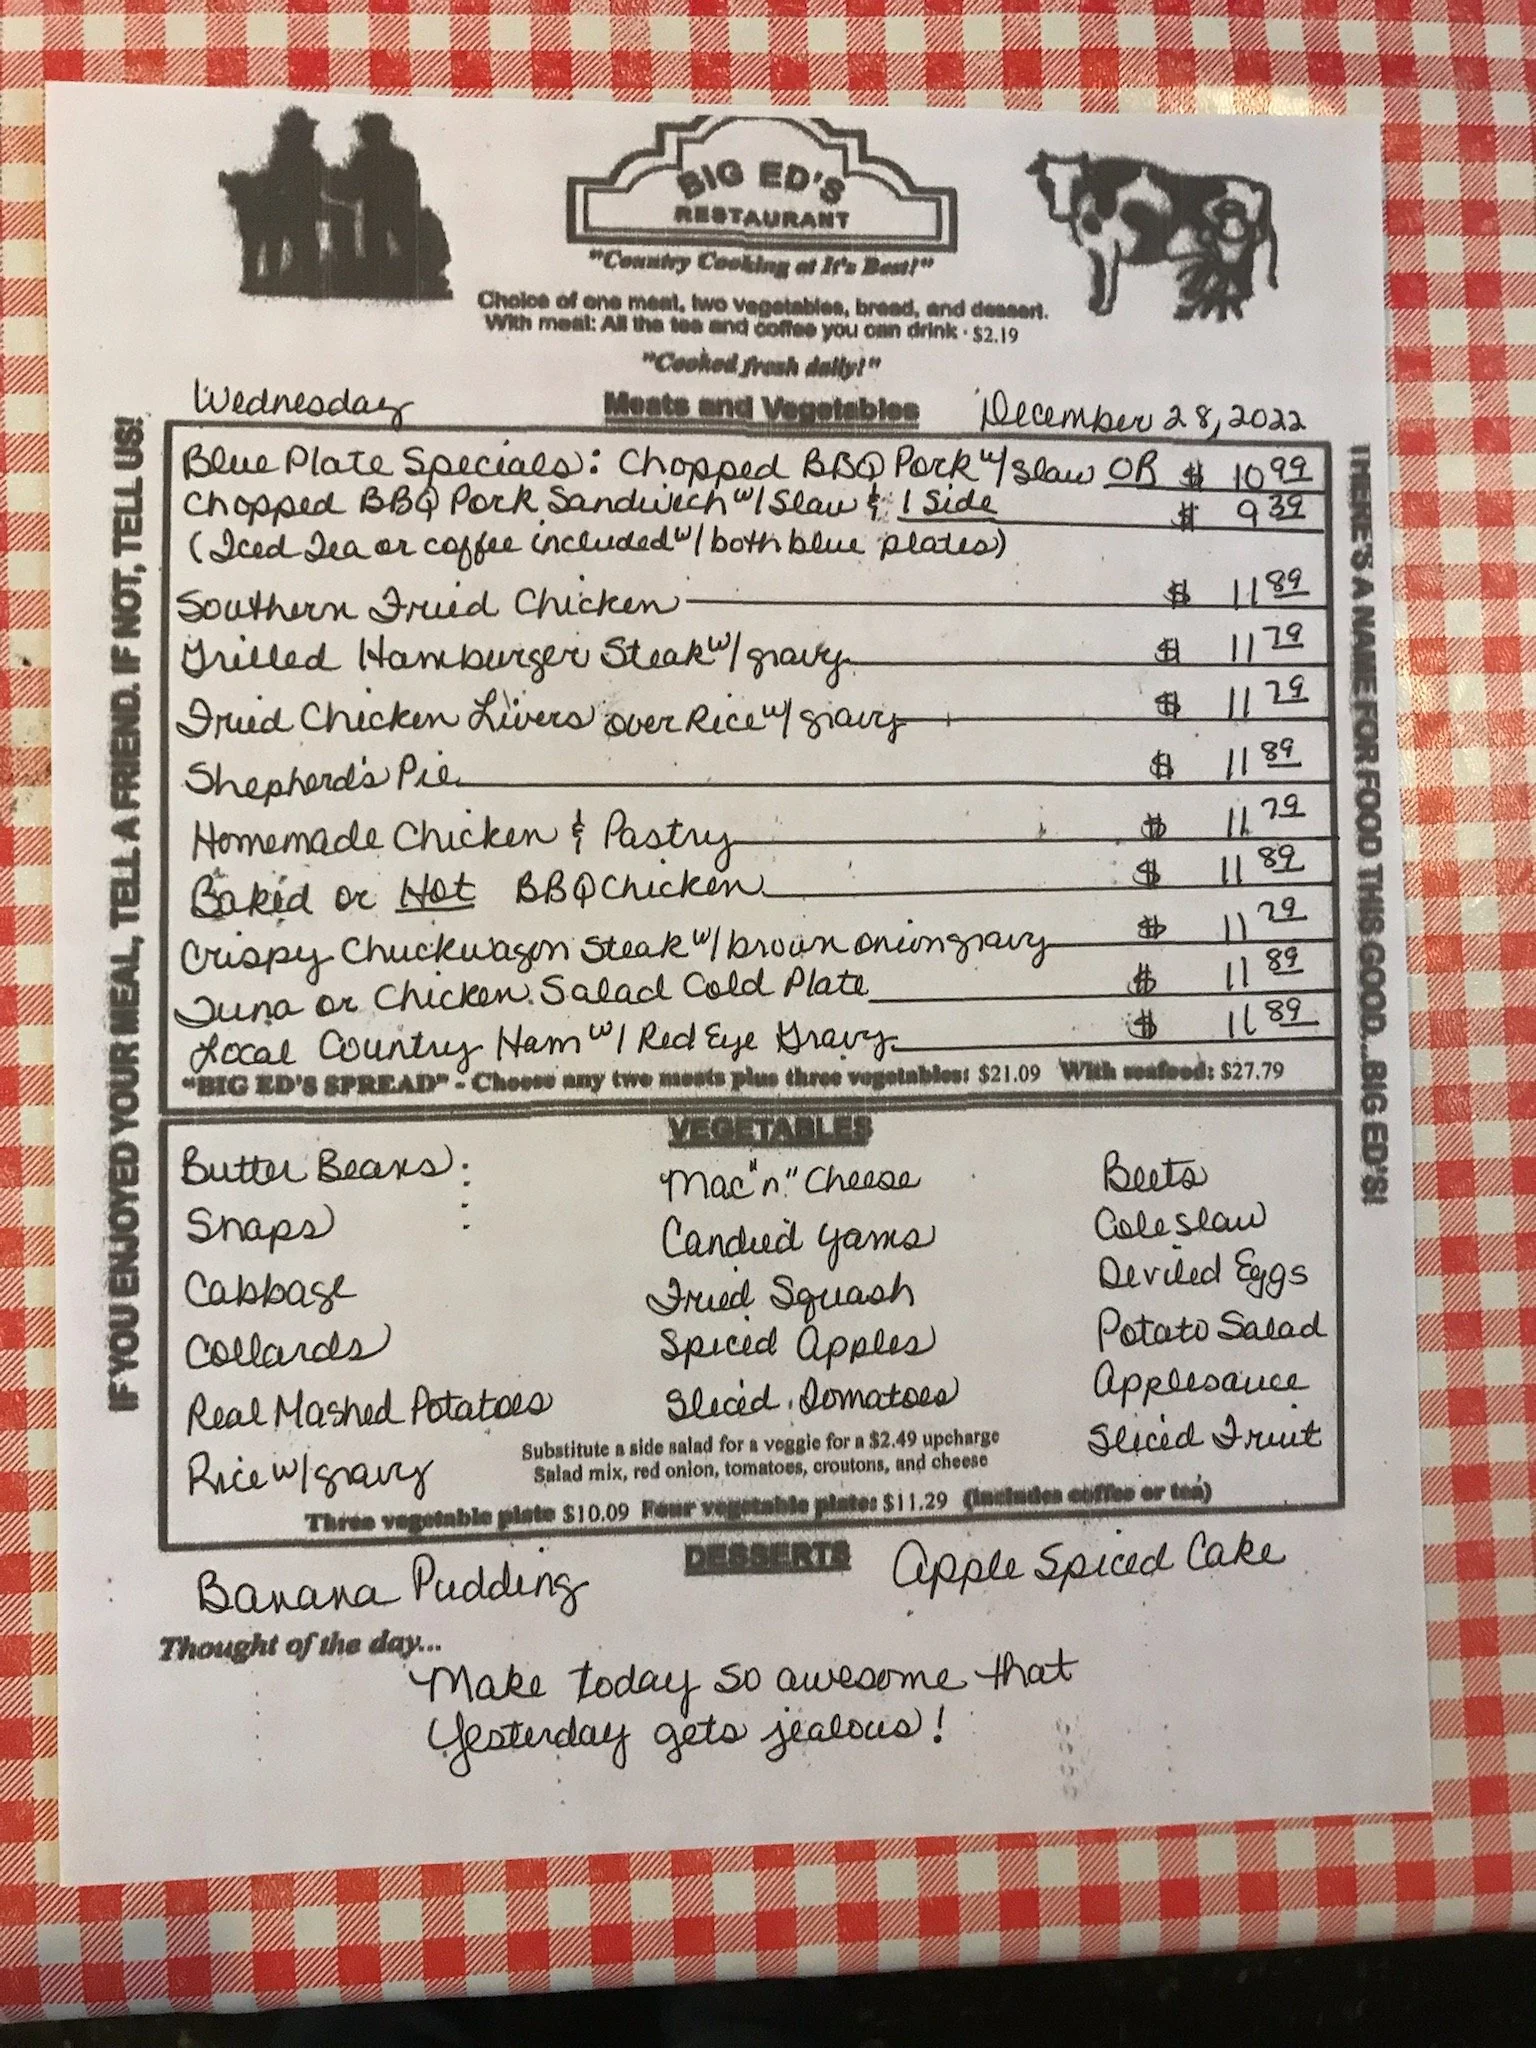 BIG ED'S
RESTAURANT
"Country Cooking at It's Best!"
Choice of one meat, two vegetables, bread, and dessert.
With meal: All the tea and coffee you can drink · $2.19
"Cooked fresh daily!"
Wednesday Meats and Vegetables December 28, 2022
IF YOU ENJOYED YOUR MEAL, TELL A FRIEND. IF NOT, TELL US!
THERE'S A NAME FOR FOOD THIS GOOD...BIG ED'S!
Blue Plate Specials: Chopped BBQ Pork w/ Slaw OR $ 10.99
Chopped BBQ Pork Sandwich w/ Slaw & 1 Side $ 9.39
(Iced Tea or coffee included w/ both blue plates)
Southern Fried Chicken $ 11.89
Grilled Hamburger Steak w/ gravy $ 11.79
Fried Chicken Livers over Rice w/ gravy $ 11.79
Shepherd's Pie $ 11.89
Homemade Chicken & Pastry $ 11.79
Baked or Hot BBQ Chicken $ 11.89
Crispy Chuckwagon Steak w/ brown onion gravy $ 11.79
Tuna or Chicken Salad Cold Plate $ 11.89
Local Country Ham w/ Red Eye Gravy $ 11.89
"BIG ED'S SPREAD" - Choose any two meats plus three vegetables: $21.09 With seafood: $27.79
VEGETABLES
Butter Beans Mac "n" Cheese Beets
Snaps Candied Yams Coleslaw
Cabbage Fried Squash Deviled Eggs
Collards Spiced Apples Potato Salad
Real Mashed Potatoes Sliced Tomatoes Applesauce
Rice w/ gravy Sliced Fruit
Substitute a side salad for a veggie for a $2.49 upcharge
Salad mix, red onion, tomatoes, croutons, and cheese
Three vegetable plate $10.09 Four vegetable plate: $11.29 (includes coffee or tea)
DESSERTS
Banana Pudding Apple Spiced Cake
Thought of the day...
Make today so awesome that
Yesterday gets jealous!